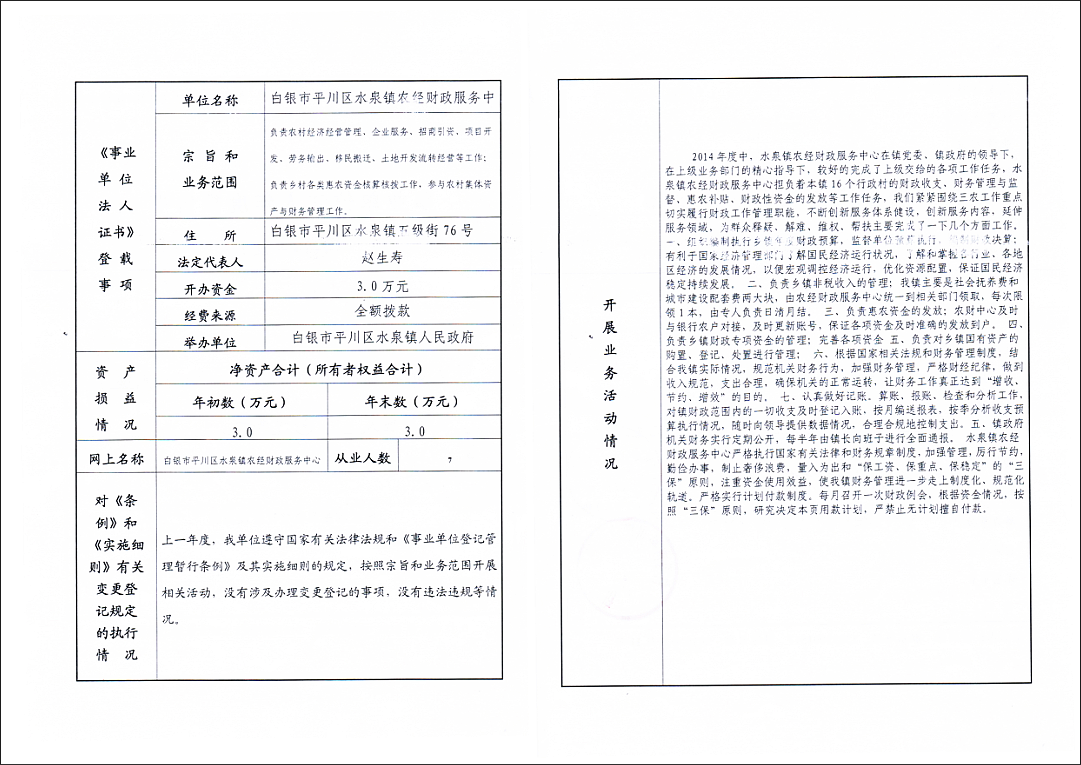 《事业
单 位
法 人
证书》
登 载
事 项
单位名称
白银市平川区水泉镇农经财政服务中
宗 旨 和
业务范围
负责农村经济经营管理、企业服务、招商引资、项目开
发、劳务输出、移民搬迁、土地开发流转经营等工作;
负责乡村各类惠农资金核算核拨工作,参与农村集体资
产与财务管理工作。
住 所
白银市平川区水泉镇五级街 76 号
法定代表人
赵生寿
开办资金
3.0 万元
经费来源
全额拨款
举办单位
白银市平川区水泉镇人民政府
资 产
损 益
情 况
净资产合计(所有者权益合计)
年初数(万元)
年末数(万元)
3.0
3.0
网上名称
白银市平川区水泉镇农经财政服务中心
从业人数
7
对《条
例》和
《实施细
则》有关
变更登
记规定
的执行
情 况
上一年度,我单位遵守国家有关法律法规和《事业单位登记管
理暂行条例》及其实施细则的规定,按照宗旨和业务范围开展
相关活动,没有涉及办理变更登记的事项,没有违法违规等情
况。
开
展
业
务
活
动
情
况
2014 年度中,水泉镇农经财政服务中心在镇党委、镇政府的领导下,
在上级业务部门的精心指导下,较好的完成了上级交给的各项工作任务,水
泉镇农经财政服务中心担负着本镇 16 个行政村的财政收支、财务管理与监
督、惠农补贴、财政性资金的发放等工作任务,我们紧紧围绕三农工作重点
切实履行财政工作管理职能,不断创新服务体系健设,创新服务内容,延伸
服务领域,为群众释疑、解难、维权、帮扶主要完成了一下几个方面工作。
一、组织编制执行乡镇年度财政预算,监督单位预算执行,决算;
有利于国家经济管理部门了解国民经济运行状况,了解和掌握各行业、各地
区经济的发展情况,以便宏观调控经济运行,优化资源配置,保证国民经济
稳定持续发展。 二、负责乡镇非税收入的管理;我镇主要是社会抚养费和
城市建设配套费两大块,由农经财政服务中心统一到相关部门领取,每次限
领 1 本,由专人负责日清月结。 三、负责惠农资金的发放;农财中心及时
与银行农户对接,及时更新账号,保证各项资金及时准确的发放到户。 四、
负责乡镇财政专项资金的管理;完善各项资金 五、负责对乡镇国有资产的
购置、登记、处置进行管理; 六、根据国家相关法规和财务管理制度,结
合我镇实际情况,规范机关财务行为,加强财务管理,严格财经纪律,做到
收入规范,支出合理,确保机关的正常运转,让财务工作真正达到“增收、
节约、增效”的目的。 七、认真做好记账、算账、报账、检查和分析工作,
对镇财政范围内的一切收支及时登记入账,按月编送报表,按季分析收支预
算执行情况,随时向领导提供数据情况,合理合规地控制支出。五、镇政府
机关财务实行定期公开,每半年由镇长向班子进行全面通报。 水泉镇农经
财政服务中心严格执行国家有关法律和财务规章制度,加强管理,厉行节约,
勤俭办事,制止奢侈浪费,量入为出和“保工资、保重点、保稳定”的“三
保”原则,注重资金使用效益,使我镇财务管理进一步走上制度化、规范化
轨道。严格实行计划付款制度。每月召开一次财政例会,根据资金情况,按
照“三保”原则,研究决定本页用款计划,严禁止无计划擅自付款。